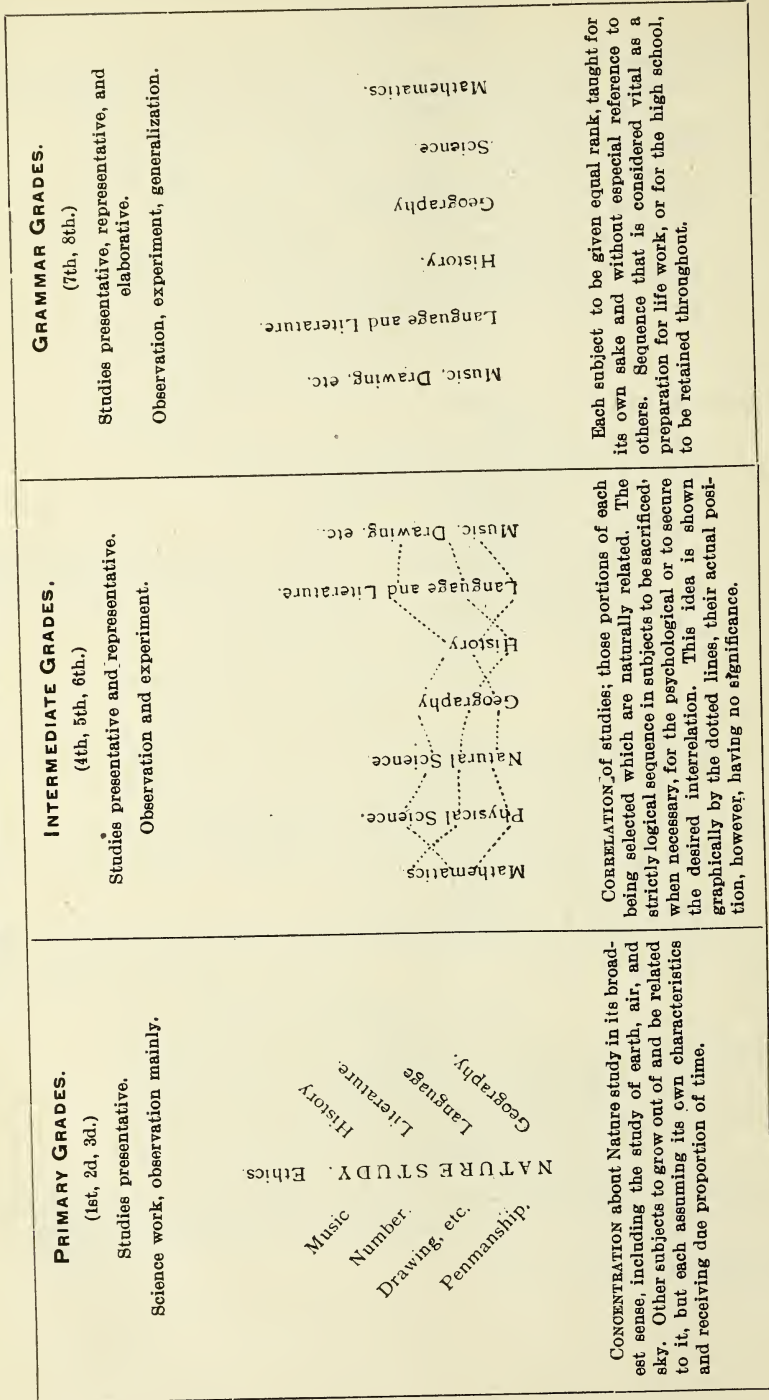 PRIMARY GRADES.
(1st, 2d, 3d.)
Studies presentative.
Science work, observation mainly.
Music
Number.
Drawing, etc.
Penmanship.
NATURE STUDY. Ethics.
History
Literature.
Language
Geography.
CONCENTRATION about Nature study in its broad-
est sense, including the study of earth, air, and
sky. Other subjects to grow out of and be related
to it, but each assuming its own characteristics
and receiving due proportion of time.
INTERMEDIATE GRADES.
(4th, 5th, 6th.)
Studies presentative and representative.
Observation and experiment.
Mathematics
Physical Science.
Natural Science
Geography
History
Language and Literature.
Music, Drawing, etc.
CORRELATION of studies; those portions of each
being selected which are naturally related. The
strictly logical sequence in subjects to be sacrificed,
when necessary, for the psychological or to secure
the desired interrelation. This idea is shown
graphically by the dotted lines, their actual posi-
tion, however, having no significance.
GRAMMAR GRADES.
(7th, 8th.)
Studies presentative, representative, and
elaborative.
Observation, experiment, generalization.
Music, Drawing, etc.
Language and Literature.
History.
Geography
Science.
Mathematics.
Each subject to be given equal rank, taught for
its own sake and without especial reference to
others. Sequence that is considered vital as a
preparation for life work, or for the high school,
to be retained throughout.